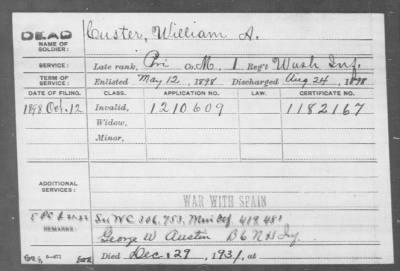 DEAD Custer, William A.
NAME OF SOLDIER:
SERVICE: Late rank, Pri Co. M, 1 Reg't Wash Inf.
TERM OF SERVICE: Enlisted May 12, 1898 Discharged Aug 24, 1898
DATE OF FILING. CLASS. APPLICATION NO. LAW. CERTIFICATE NO.
1898 Oct. 12 Invalid, 1210609 1182167
Widow,
Minor,
ADDITIONAL SERVICES:
WAR WITH SPAIN
REMARKS:
George W Austin B 6 N H Inf.
Died Dec. 29, 1931, at